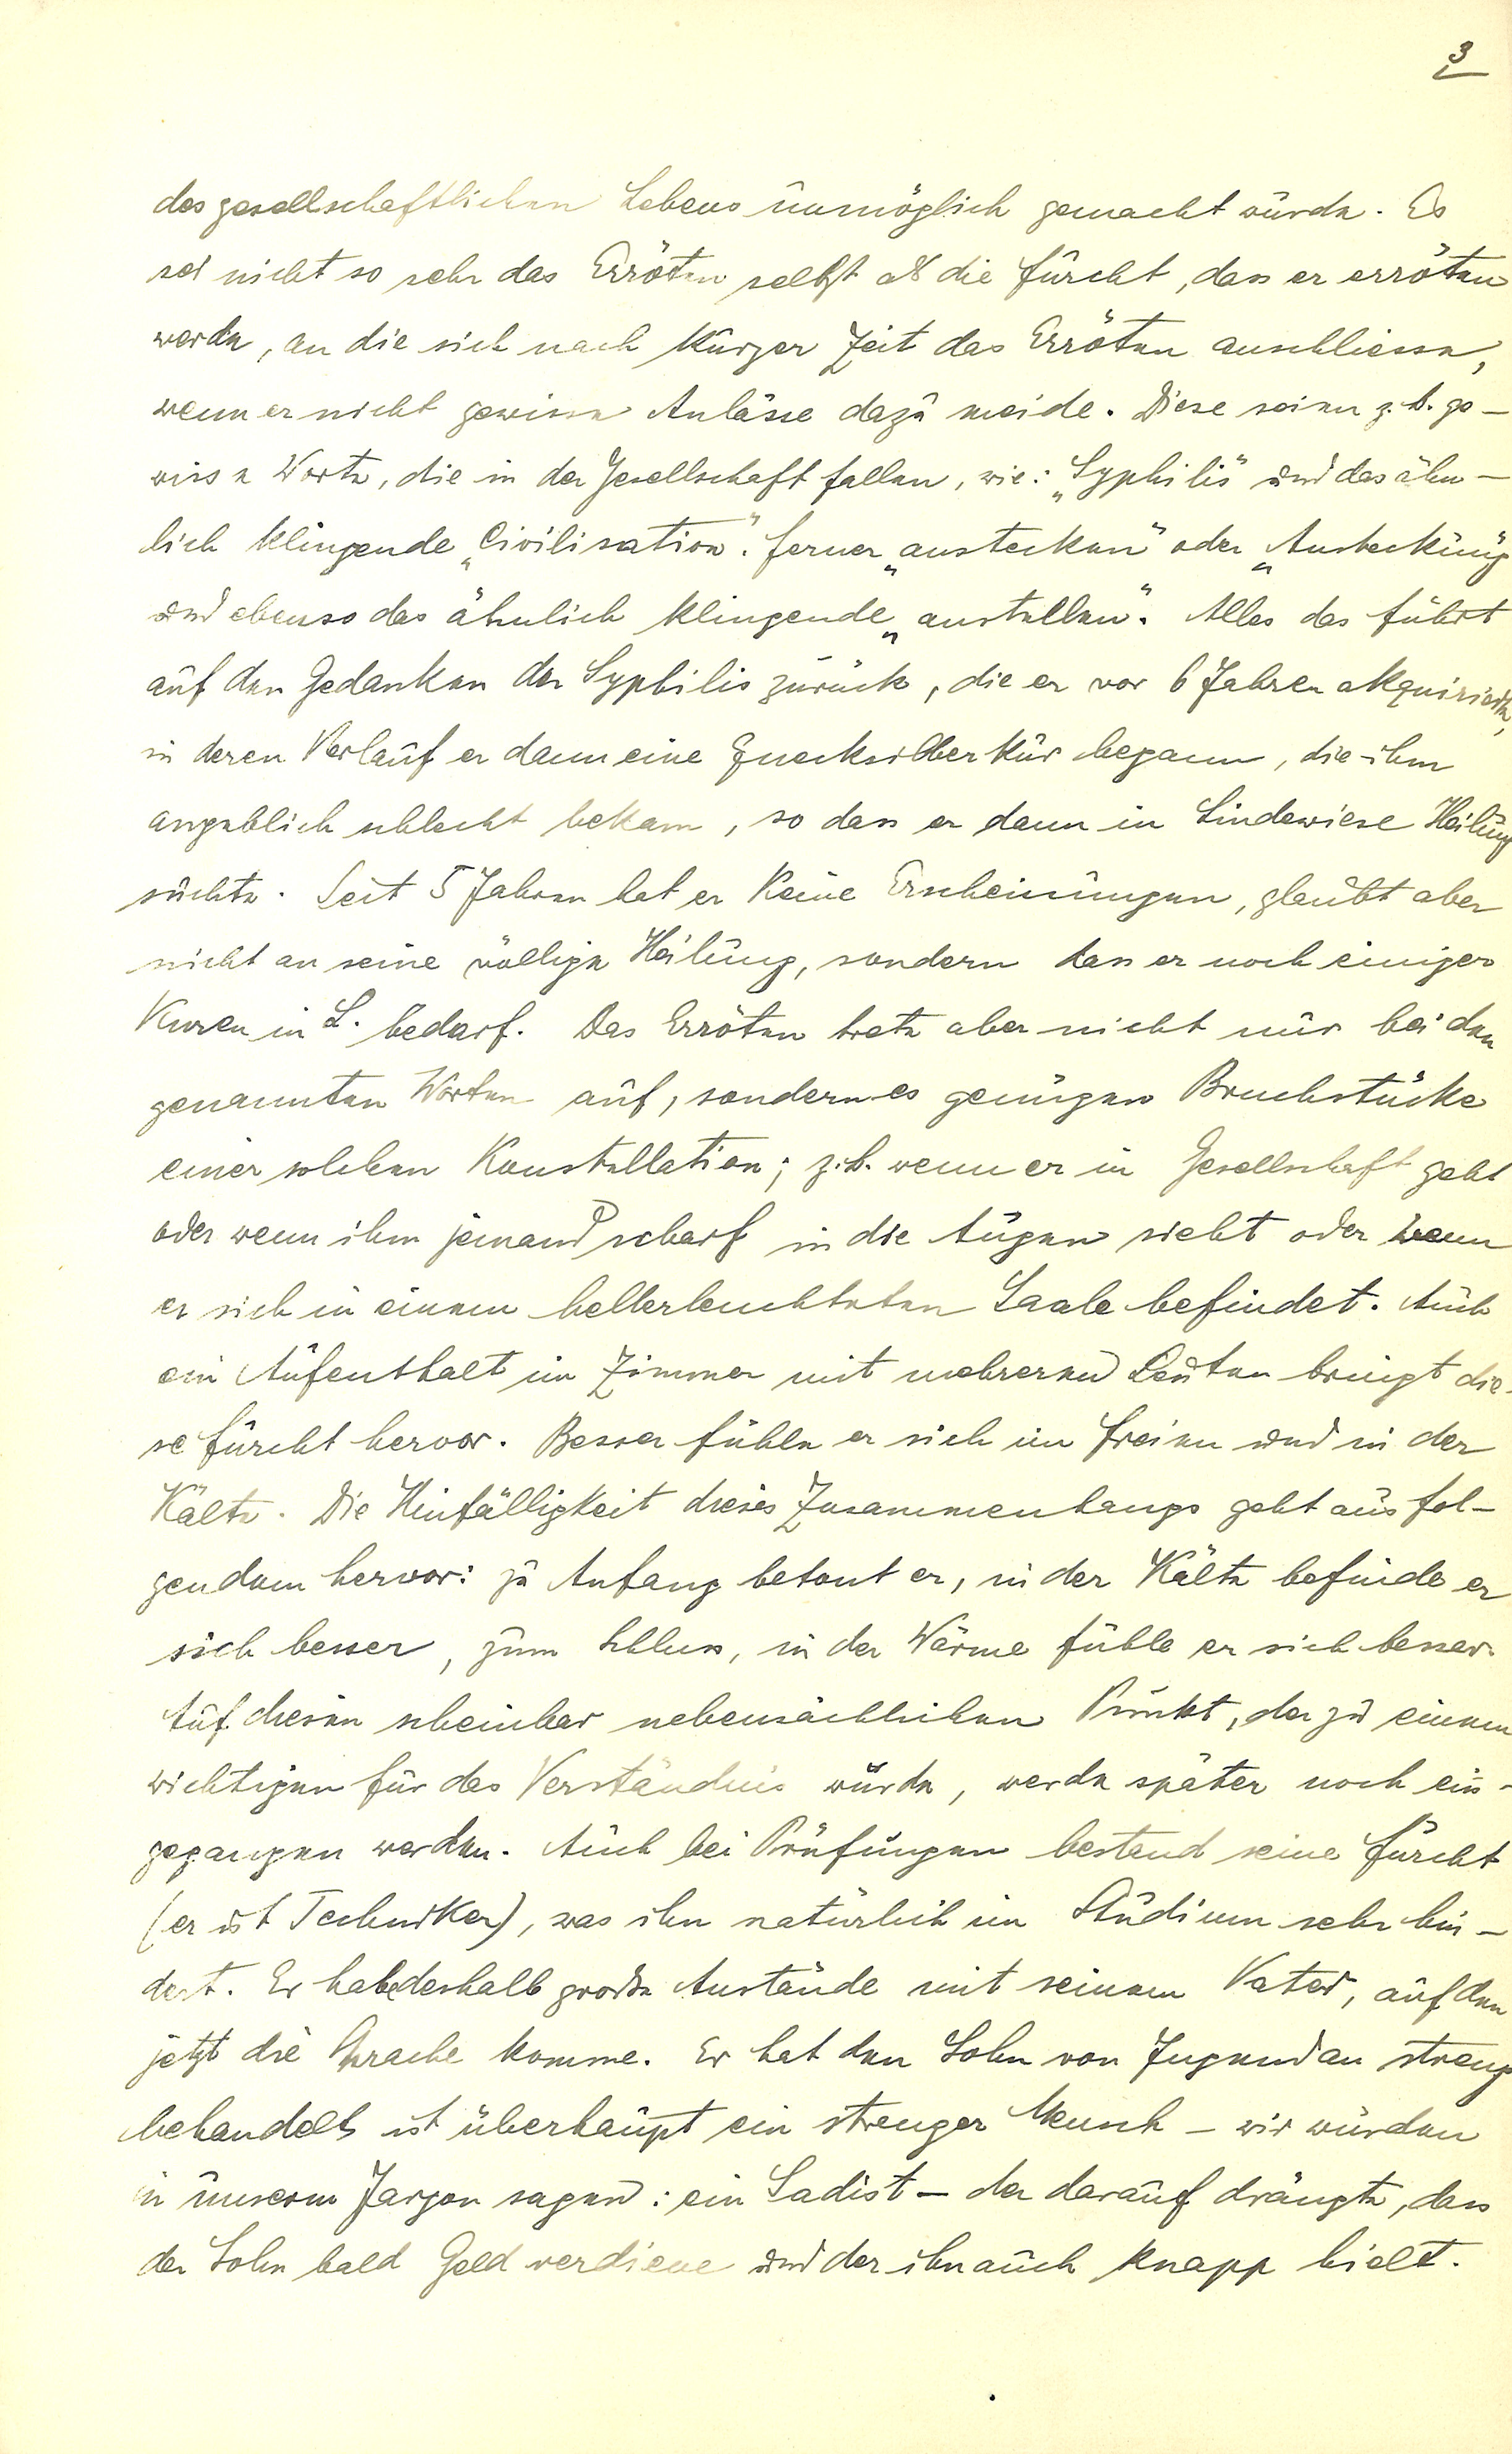 3
des gesellschaftlichen Lebens unmöglich gemacht würde. Es
sei nicht so sehr das Erröten selbst als die Furcht, dass er erröten
werde, an die sich nach kurzer Zeit das Erröten anschliesse,
wenn er nicht gewisse Anlässe dazu meide. Diese seien z. b. ge-
wisse Worte, die in der Gesellschaft fallen, wie: „Syphilis" und das ähn-
lich klingende „Civilisation". ferner „anstecken" oder „Ansteckung
und ebenso das ähnlich klingende „anstellen". Alles das führt
auf den Gedanken der Syphilis zurück, die er vor 6 Jahren akquirierte,
in deren Verlauf er dann eine Quecksilberkur begann, die ihm
angeblich schlecht bekam, so dass er dann in Lindewiese Heilung
suchte. Seit 5 Jahren hat er keine Erscheinungen, glaubt aber
nicht an seine völlige Heilung, sondern dass er noch einiger
Kuren in L. bedarf. Das Erröten trete aber nicht nur bei den
genannten Worten auf, sondern es genügen Bruchstücke
einer solchen Konstellation; z. b. wenn er in Gesellschaft geht
oder wenn ihm jemand scharf in die Augen sieht oder wenn
er sich in einem hellerleuchteten Saale befindet. Auch
ein Aufenthalt im Zimmer mit mehreren Leuten bringt die-
se Furcht hervor. Besser fühle er sich im freien und in der
Kälte. Die Hinfälligkeit dieses Zusammenhangs geht aus fol-
gendem hervor: zu Anfang betont er, in der Kälte befinde er
sich besser, zum Schluss, in der Wärme fühle er sich besser.
Auf diesen scheinbar nebensächlichen Punkt, der zu einem
wichtigen für das Verständnis wurde, werde später noch ein-
gegangen werden. Auch bei Prüfungen bestand seine Furcht
(er ist Techniker), was ihn natürlich im Studium sehr hin-
dert. Er habe deshalb grosse Anstände mit seinem Vater, auf den
jetzt die Sprache komme. Er hat den Sohn von Jugend an streng
behandelt, ist überhaupt ein strenger Mensch – wir würden
in unserm Jargon sagen: ein Sadist – der darauf drängte, dass
der Sohn bald Geld verdiene und der ihn auch knapp hielt.